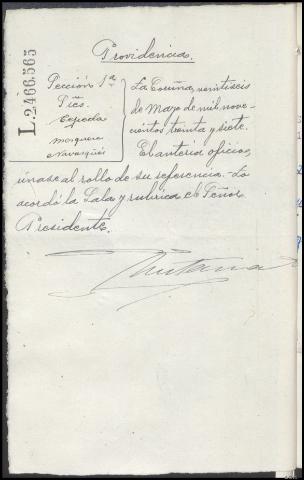 Providencia.
L.2.466.565
Sección 1ª
Sres.
Cepeda
Mosquera
Navarqués
La Coruña, veintiseis
de Mayo de mil nove-
cientos treinta y siete.
El anterior oficio,
únase al rollo de su referencia. Lo
acordó la Sala y rubrica el Señor
Presidente.